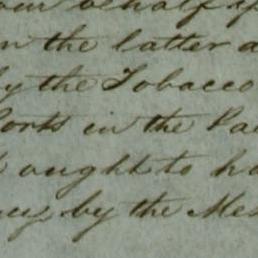 our behalf
in the latter a
by the Tobacco
Ports in the Pa
ought to ha
by the Mes